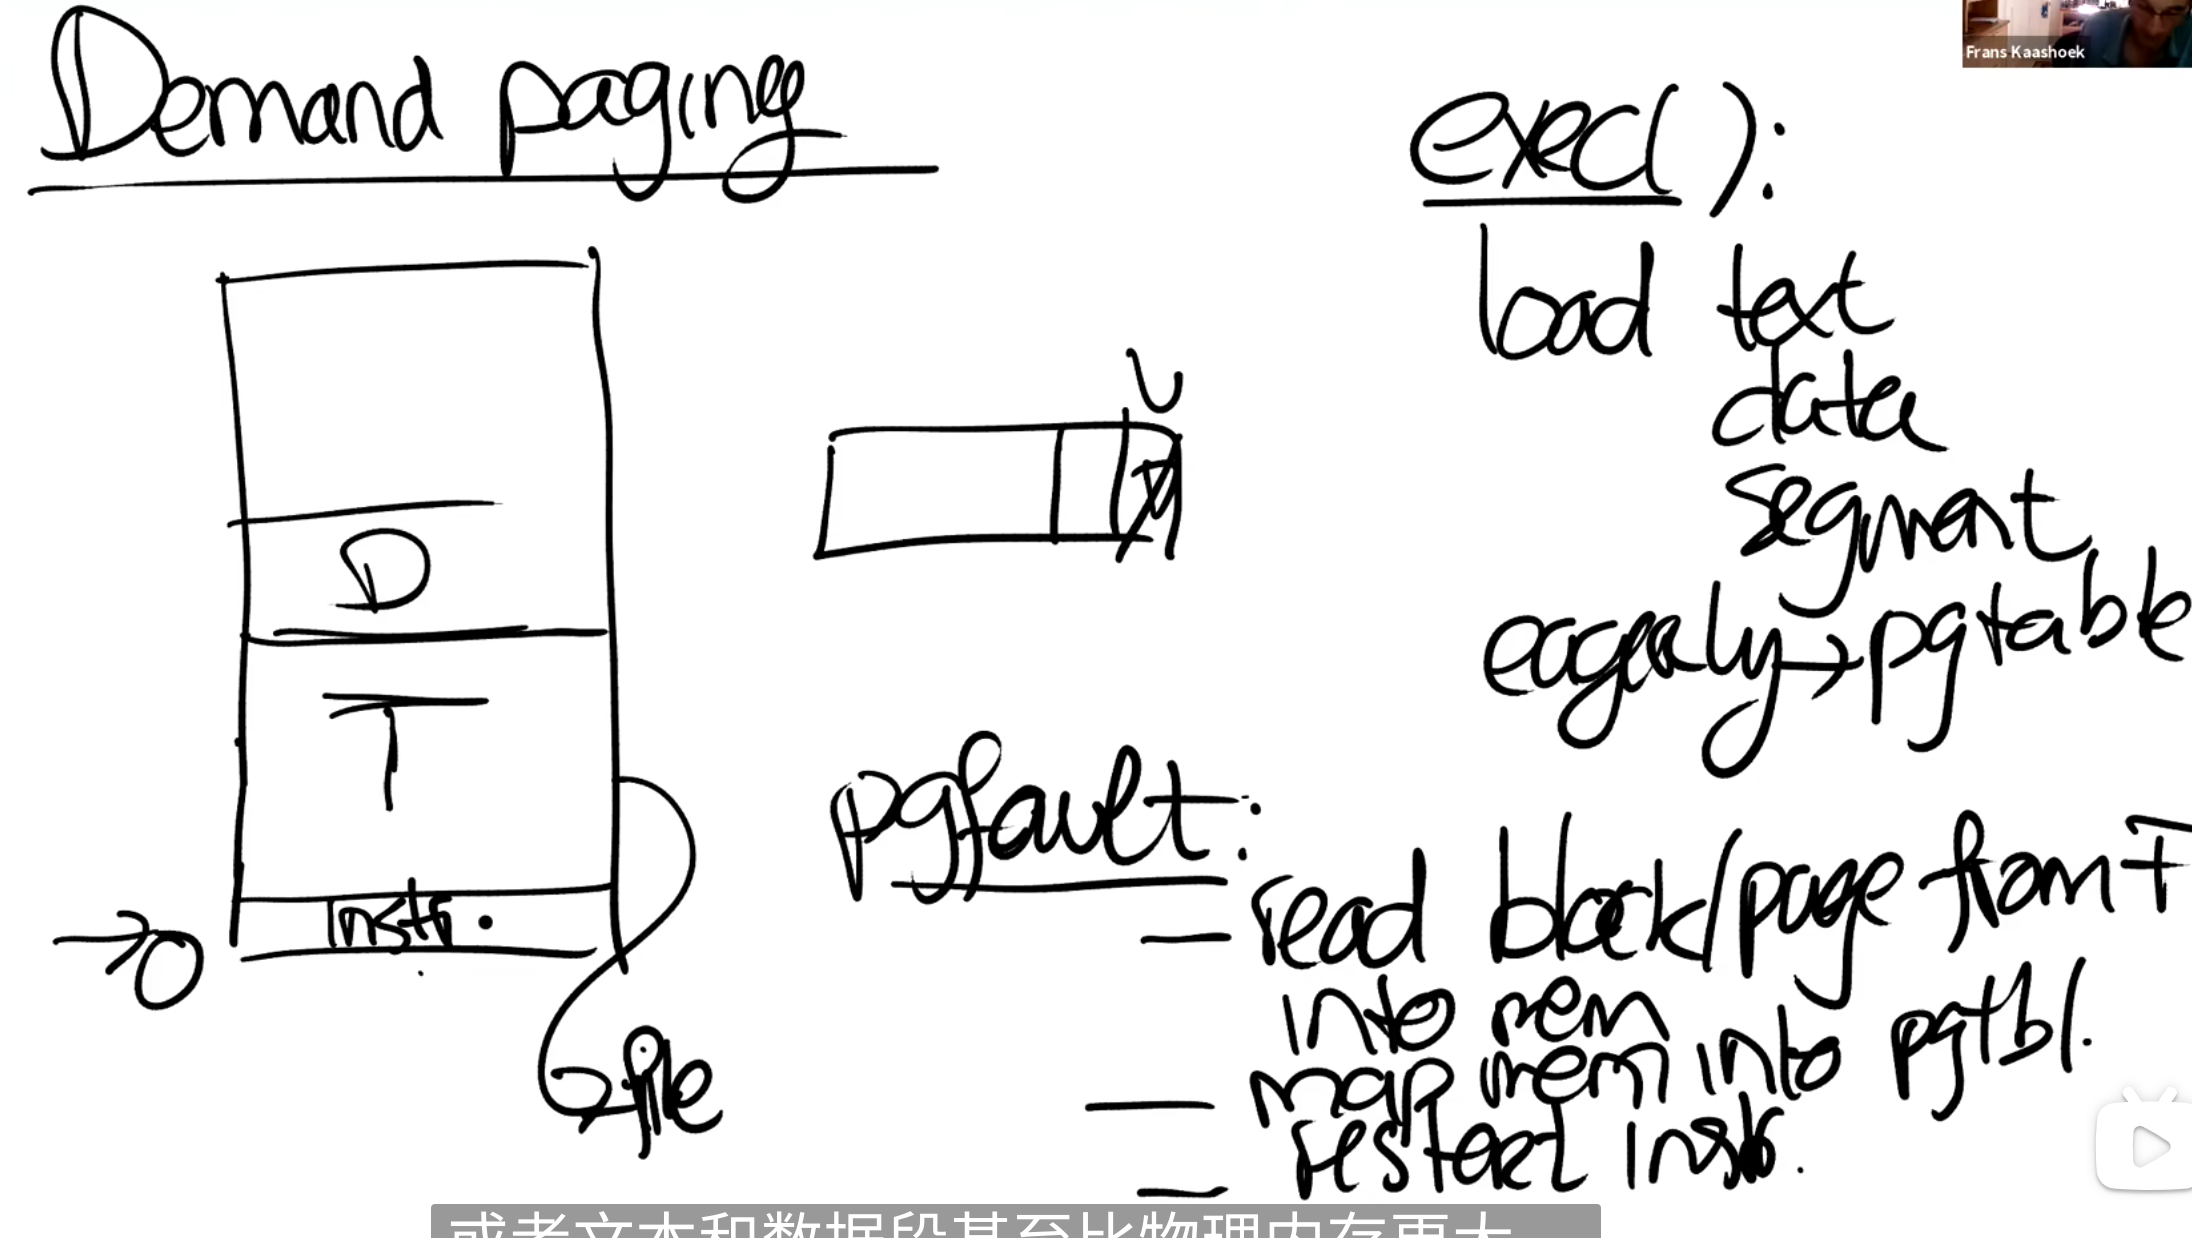 Demand paging
Frans Kaashoek
exec():
load text
data
segment
eagerly → pgtable
V
D
T
→0
Instr.
→ file
pgfault:
— read block/page from F
into mem
— map mem into pgtbl.
— restart instr.
或者文本和数据段甚至比物理内存更大